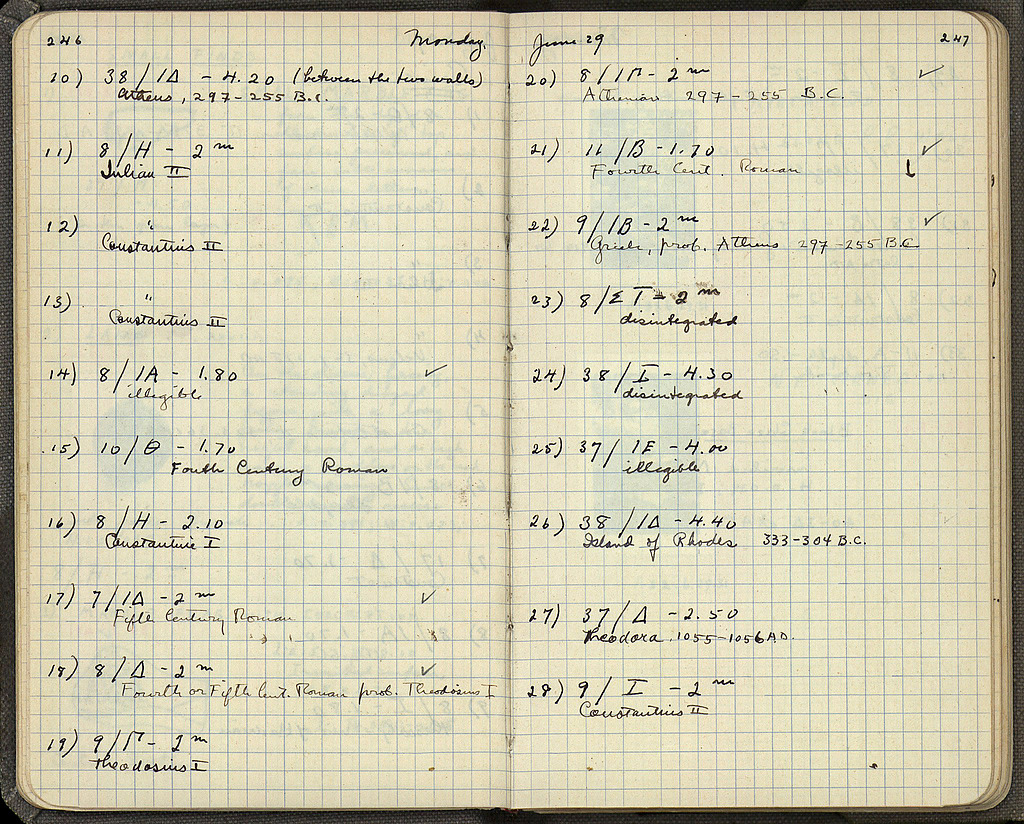 246
Monday,
10) 38/ΙΔ - 4.20 (between the two walls)
Athens, 297-255 B.C.
11) 8/H - 2 m
Julian II
12) "
Constantius II
13) "
Constantius II
14) 8/ΙA - 1.80 ✓
illegible
15) 10/Θ - 1.70
Fourth Century Roman
16) 8/H - 2.10
Constantine I
17) 7/ΙΔ - 2 m ✓
Fifth Century Roman
18) 8/Δ - 2 m ✓
Fourth or Fifth Cent. Roman prob. Theodosius I
19) 9/Γ - 2 m
Theodosius I
June 29
247
20) 8/ΙΓ - 2 m ✓
Athenian 297-255 B.C.
21) 11/B - 1.70 ✓
Fourth Cent. Roman
22) 9/ΙB - 2 m ✓
Greek, prob. Athens 297-255 B.C.
23) 8/ΣΤ - 2 m
disintegrated
24) 38/I - 4.30
disintegrated
25) 37/ΙE - 4.00
illegible
26) 38/ΙΔ - 4.40
Island of Rhodes 333-304 B.C.
27) 37/Δ - 2.50
Theodora 1055-1056 A.D.
28) 9/I - 2 m
Constantius II